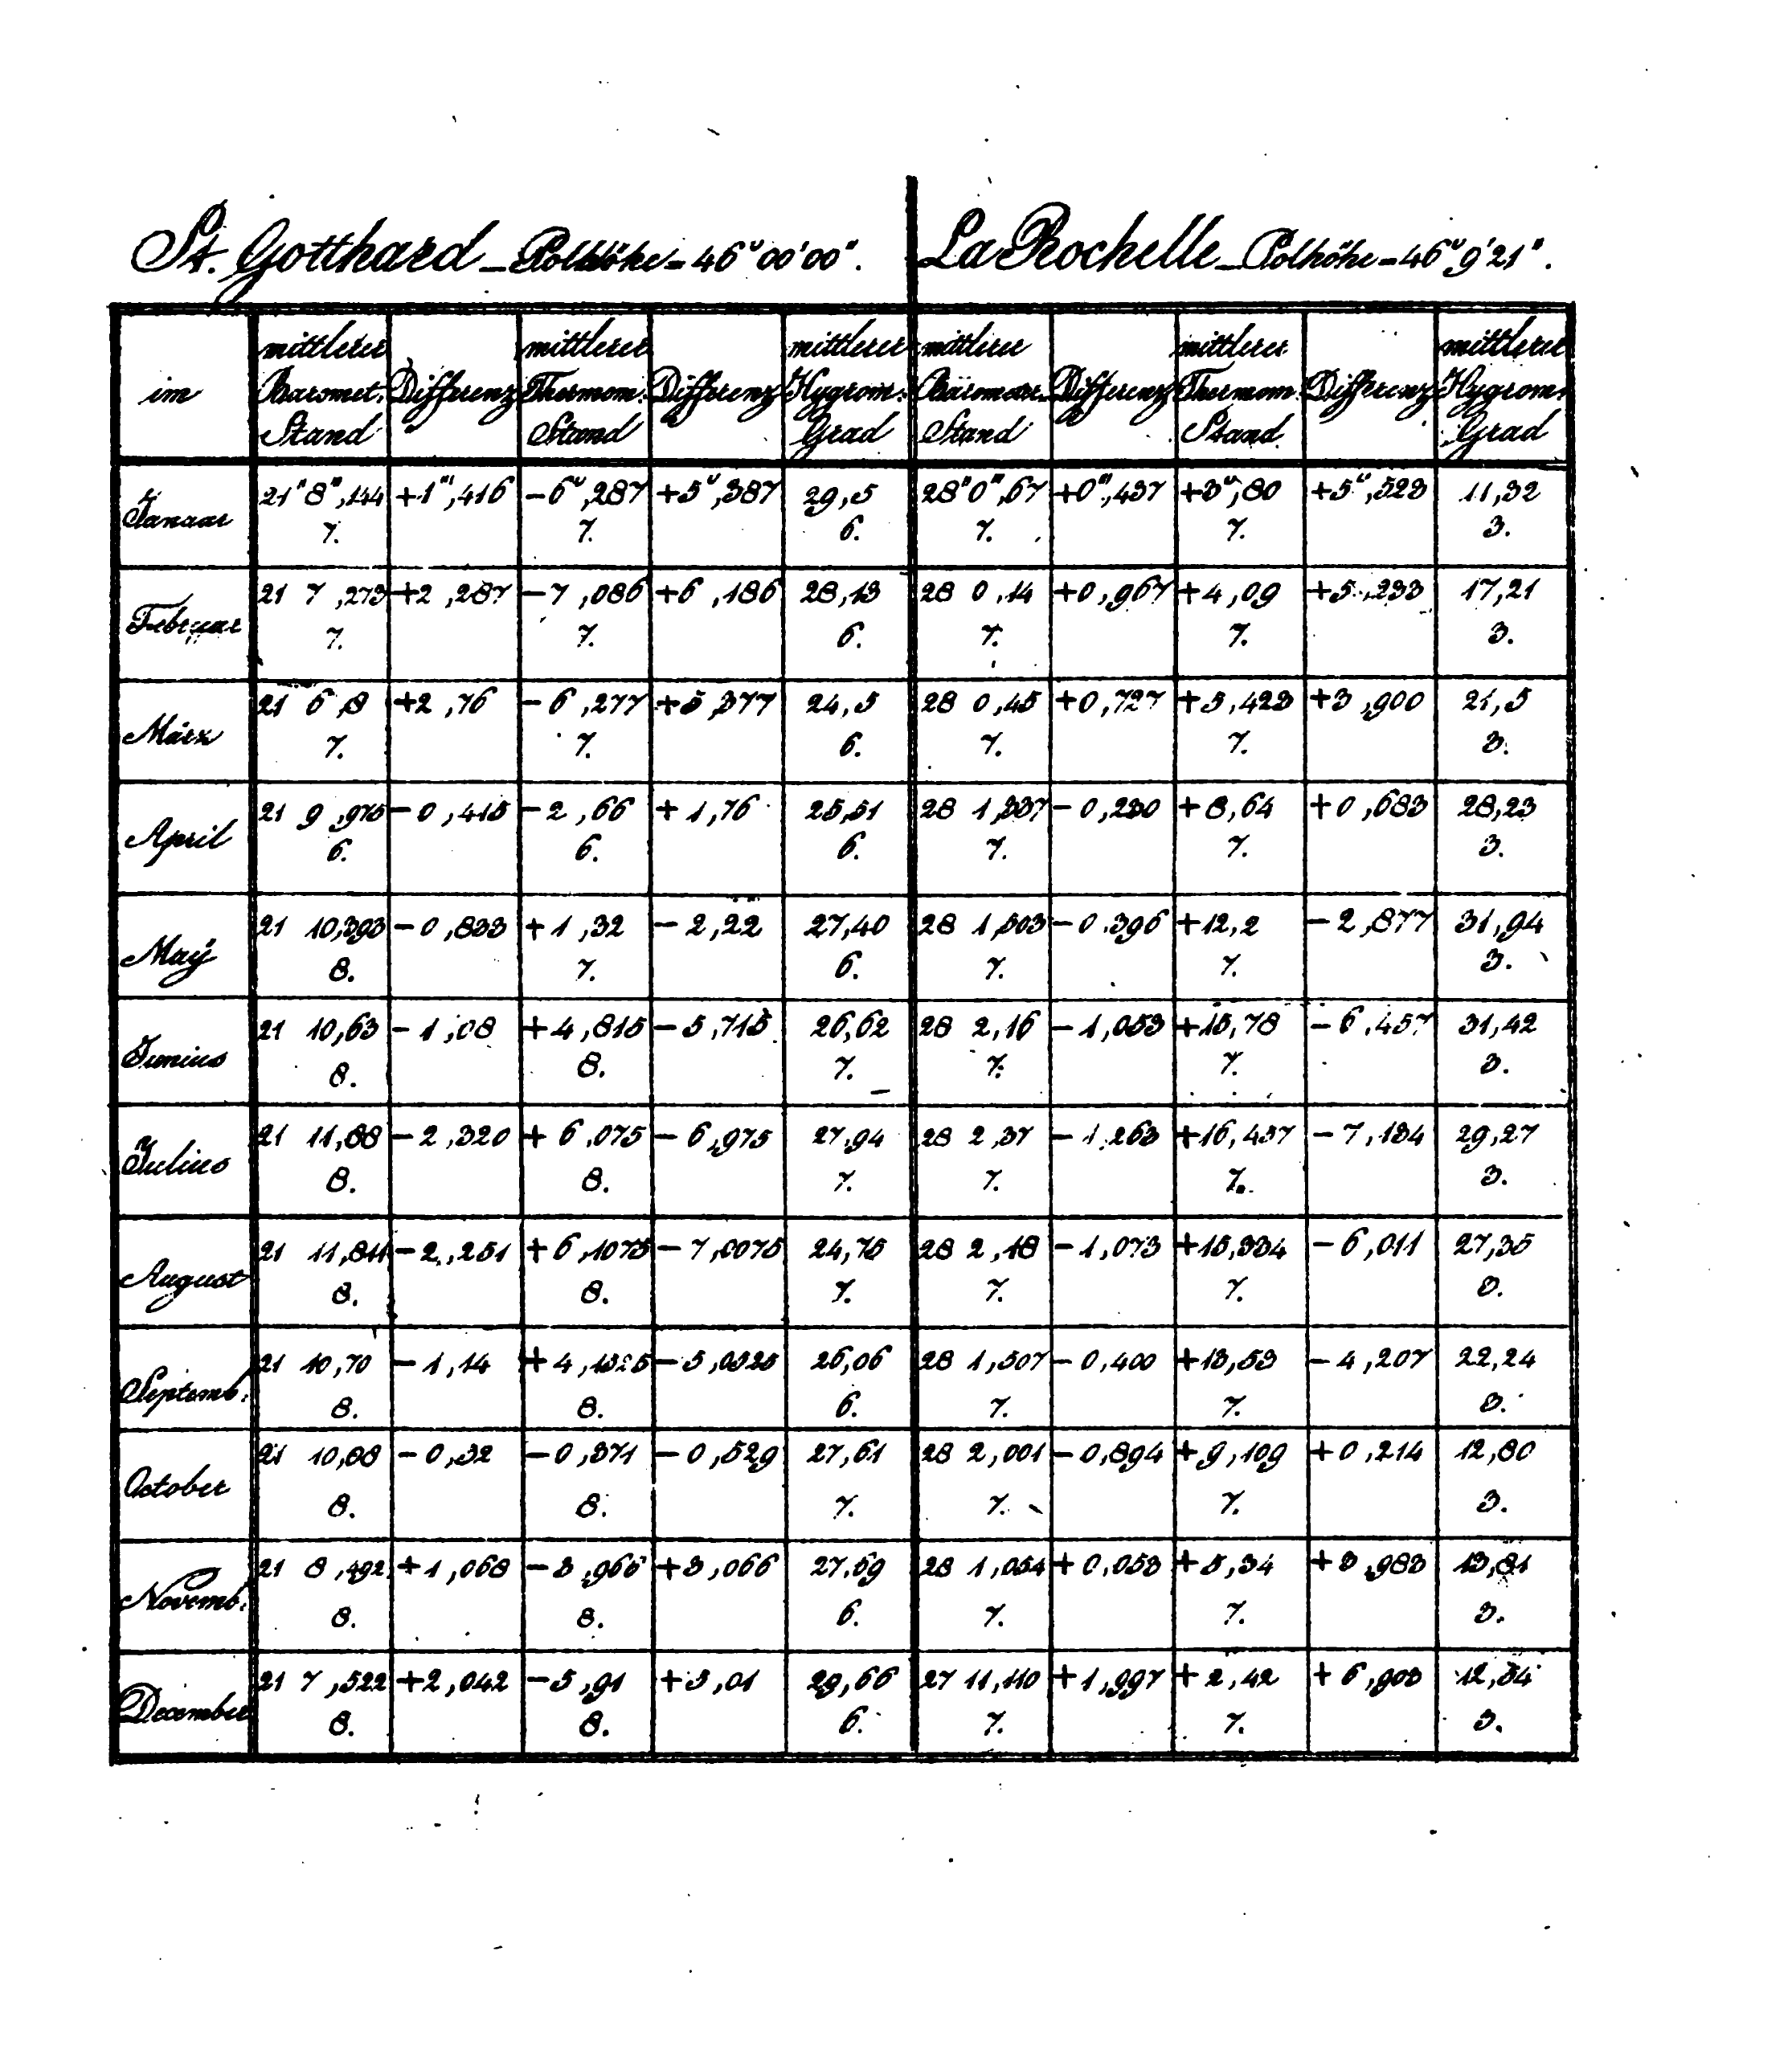 St. Gotthard – Polhöhe = 46° 00' 00". La Rochelle – Polhöhe = 46° 9' 21".
im mittlerer Baromet. Stand Differenz mittlerer Thermom. Stand Differenz mittlerer Hygrom. Grad mittlerer Barometer. Stand Differenz mittlerer Thermom. Stand Differenz mittlerer Hygrom. Grad
Januar 21" 8''',144 +1''',416 -6°,287 +5°,387 29,5 28" 0''',67 +0''',437 +3°,80 +5°,523 11,32
7. 7. 6. 7. 7. 3.
Februar 21 7,273 +2,287 -7,086 +6,186 28,13 28 0,14 +0,967 +4,09 +5,233 17,21
7. 7. 6. 7. 7. 3.
März 21 6,8 +2,76 -6,277 +5,377 24,5 28 0,45 +0,727 +5,423 +3,900 21,5
7. 7. 6. 7. 7. 3.
April 21 9,975 -0,415 -2,66 +1,76 25,51 28 1,337 -0,230 +8,64 +0,683 28,23
6. 6. 6. 7. 7. 3.
Maÿ 21 10,393 -0,833 +1,32 -2,22 27,40 28 1,503 -0,396 +12,2 -2,877 31,94
8. 7. 6. 7. 7. 3.
Junius 21 10,63 -1,08 +4,815 -5,715 26,62 28 2,16 -1,053 +15,78 -6,457 31,42
8. 8. 7. 7. 7. 3.
Julius 21 11,88 -2,320 +6,075 -6,975 27,94 28 2,37 -1,263 +16,457 -7,134 29,27
8. 8. 7. 7. 7. 3.
August 21 11,811 -2,251 +6,1075 -7,0075 24,75 28 2,18 -1,073 +15,334 -6,011 27,35
8. 8. 7. 7. 7. 3.
Septemb. 21 10,70 -1,14 +4,1325 -5,0325 26,06 28 1,507 -0,400 +13,53 -4,207 22,24
8. 8. 6. 7. 7. 3.
October 21 10,88 -0,32 -0,371 -0,529 27,61 28 2,001 -0,894 +9,109 +0,214 12,80
8. 8. 7. 7. 7. 3.
Novemb. 21 8,492 +1,068 -3,966 +3,066 27,59 28 1,054 +0,053 +5,34 +3,983 13,81
8. 8. 6. 7. 7. 3.
December 21 7,522 +2,042 -5,91 +5,01 29,66 27 11,110 +1,997 +2,42 +6,903 12,34
8. 8. 6. 7. 7. 3.